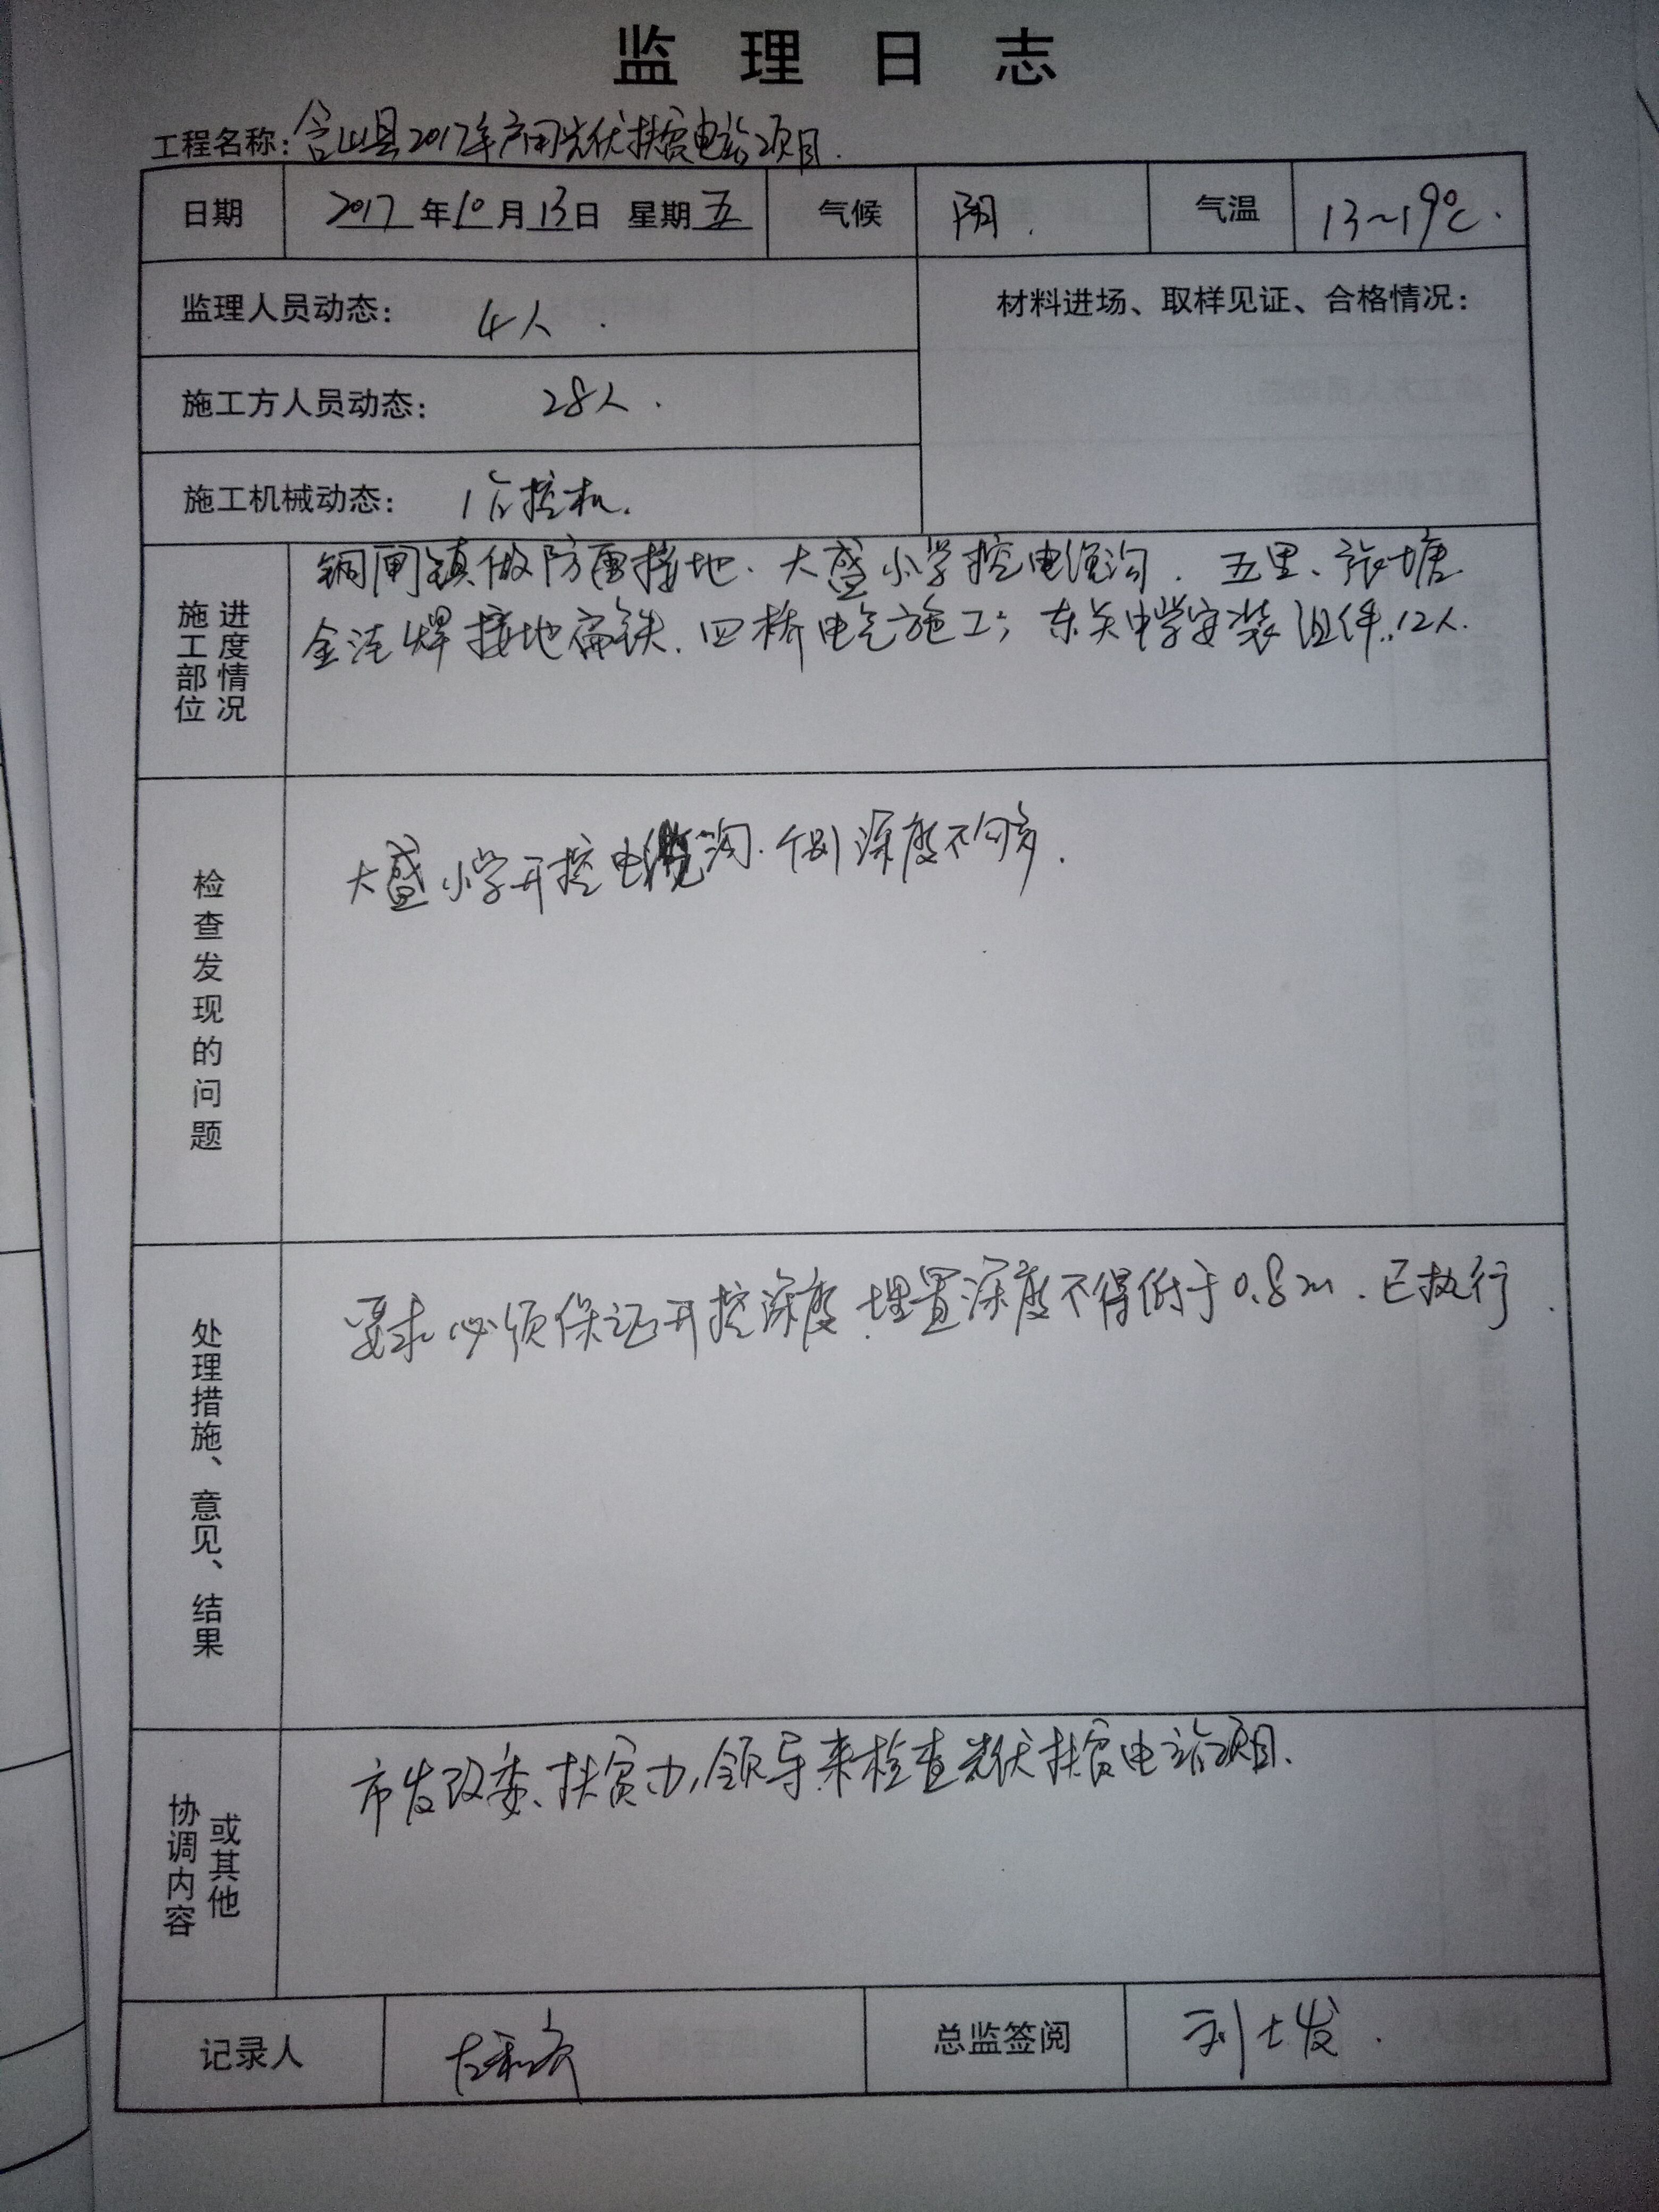 监理日志
工程名称：含山县2017年户用光伏扶贫电站项目.
日期 2017年10月13日 星期五 气候 阴. 气温 13~19℃.
监理人员动态： 4人.
材料进场、取样见证、合格情况：
施工方人员动态： 28人.
施工机械动态： 1台挖机.
施工部位 进度情况
铜闸镇做防雷接地、大盛小学挖电缆沟. 五里、张塘
金洼焊接地扁铁. 四桥电气施工; 东关中学安装组件.12人.
检查发现的问题
大盛小学开挖电缆沟. 深度不够.
处理措施、意见、结果
要求必须保证开挖深度.埋置深度不得低于0.8m.已执行.
协调内容 或其他
市发改委、扶贫办,领导来检查光伏扶贫电站项目.
记录人 总监签阅 刘士发.